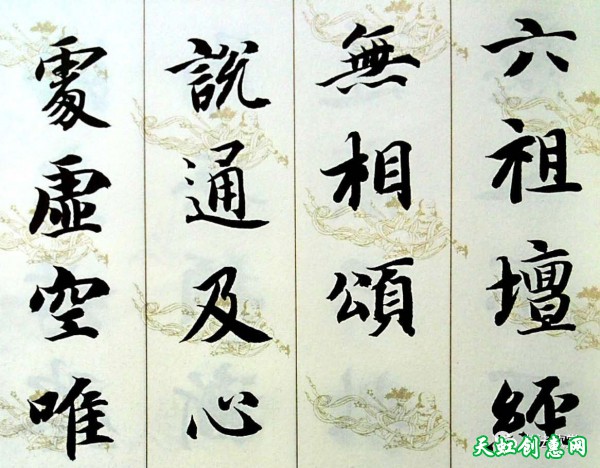 六祖壇經
無相頌
說通及心
處虛空唯
天虹创惠网